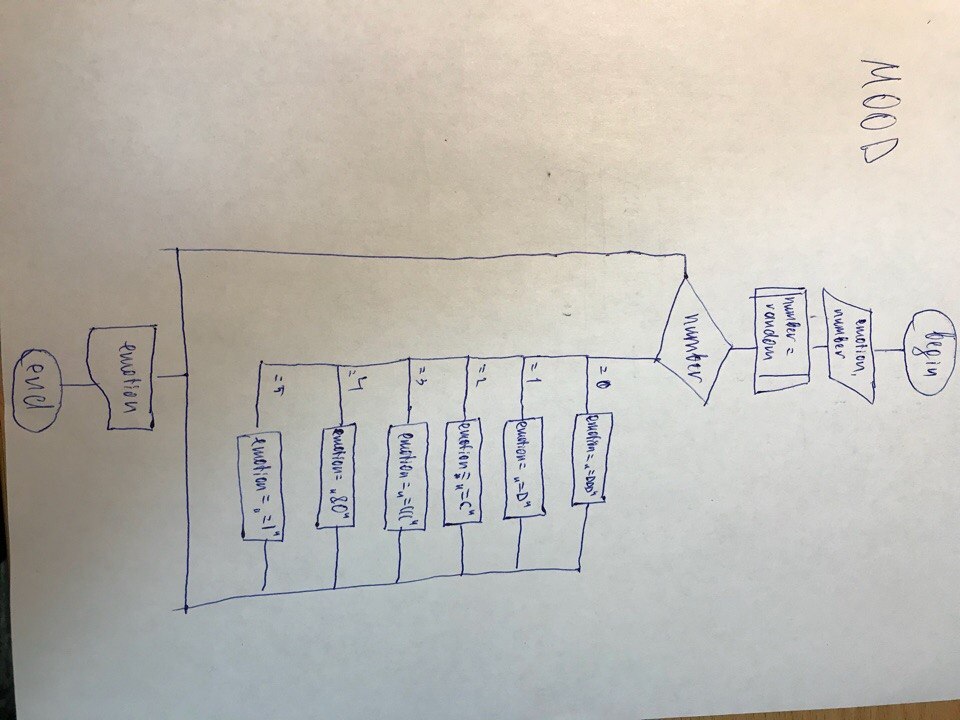 MOOD
begin
emotion,
number
number =
random
number
= 0
emotion= „=DDD"
= 1
emotion= „=D"
= 2
emotion= „=C"
= 3
emotion=„=CCC"
=4
emotion= „8O"
= 5
emotion= „=I"
emotion
end